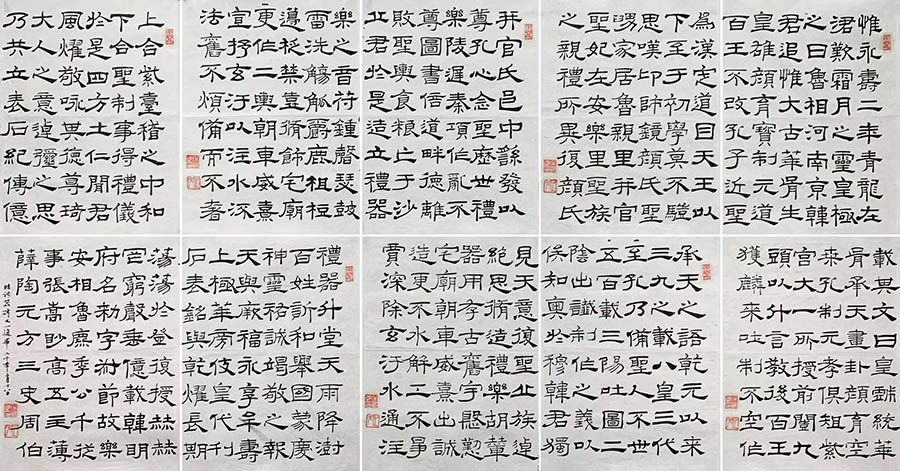 惟永壽二年青龍在
涒歎霜月之靈皇極
之日魯相河南京韓
君追惟大古華胥生
皇雄顏育寶制元道
百王不改孔子近聖
為漢定道自天王以
下至于初學莫不驥
思嘆卬師鏡顏氏聖
舅家居魯親里并官
聖妃在安樂里聖族
之親禮所異復顏氏
并官氏邑中繇發以
尊孔心念聖歷世禮
樂陵遲秦項作亂不
尊圖書倍道畔德離
敗聖輿食糧亡于沙
丘君於是造立禮器
樂之音符鍾磬瑟鼓
雷洗觴觚爵鹿柤梪
籩柉禁壺脩飾宅廟
更作二輿朝車威熹
宣抒玄汙以注水流
法舊不煩備而不奢
上合紫臺稽之中和
下合聖制事得禮儀
於是四方土仁聞君
風燿敬咏其德尊琦
大人之意逴彌之思
乃共立表石紀傳億
載其文曰皇戲統華
胥承天畫卦顏育空
桑孔制元孝俱祖紫
宮大一所授前闓九
頭以什言教後百王
獲麟來吐制不空作
承天之語乾元以來
三九之載八皇三代
至孔乃備聖人不世
五百載三陽吐圖二
陰出讖制作之義以
俟知奧於穆韓君獨
見天意復聖族逴
絕思脩禮樂胡輦
器用舊宇慇
宅廟朝車威熹出誠
造更不水解工不爭
賈深除玄汙水通注
禮器升堂天雨降澍
百姓訢和舉國蒙慶
神靈祐誠竭敬之報
天與厥福永享牟壽
上極華旁伎皇代刊
石表銘與乾燿長期
蕩蕩於登復授赫赫
罔窮聲垂億載韓明
府名勑字叔節故樂
安相魯麃季公千
事張嵩高五主薄
薛陶元方三史周伯